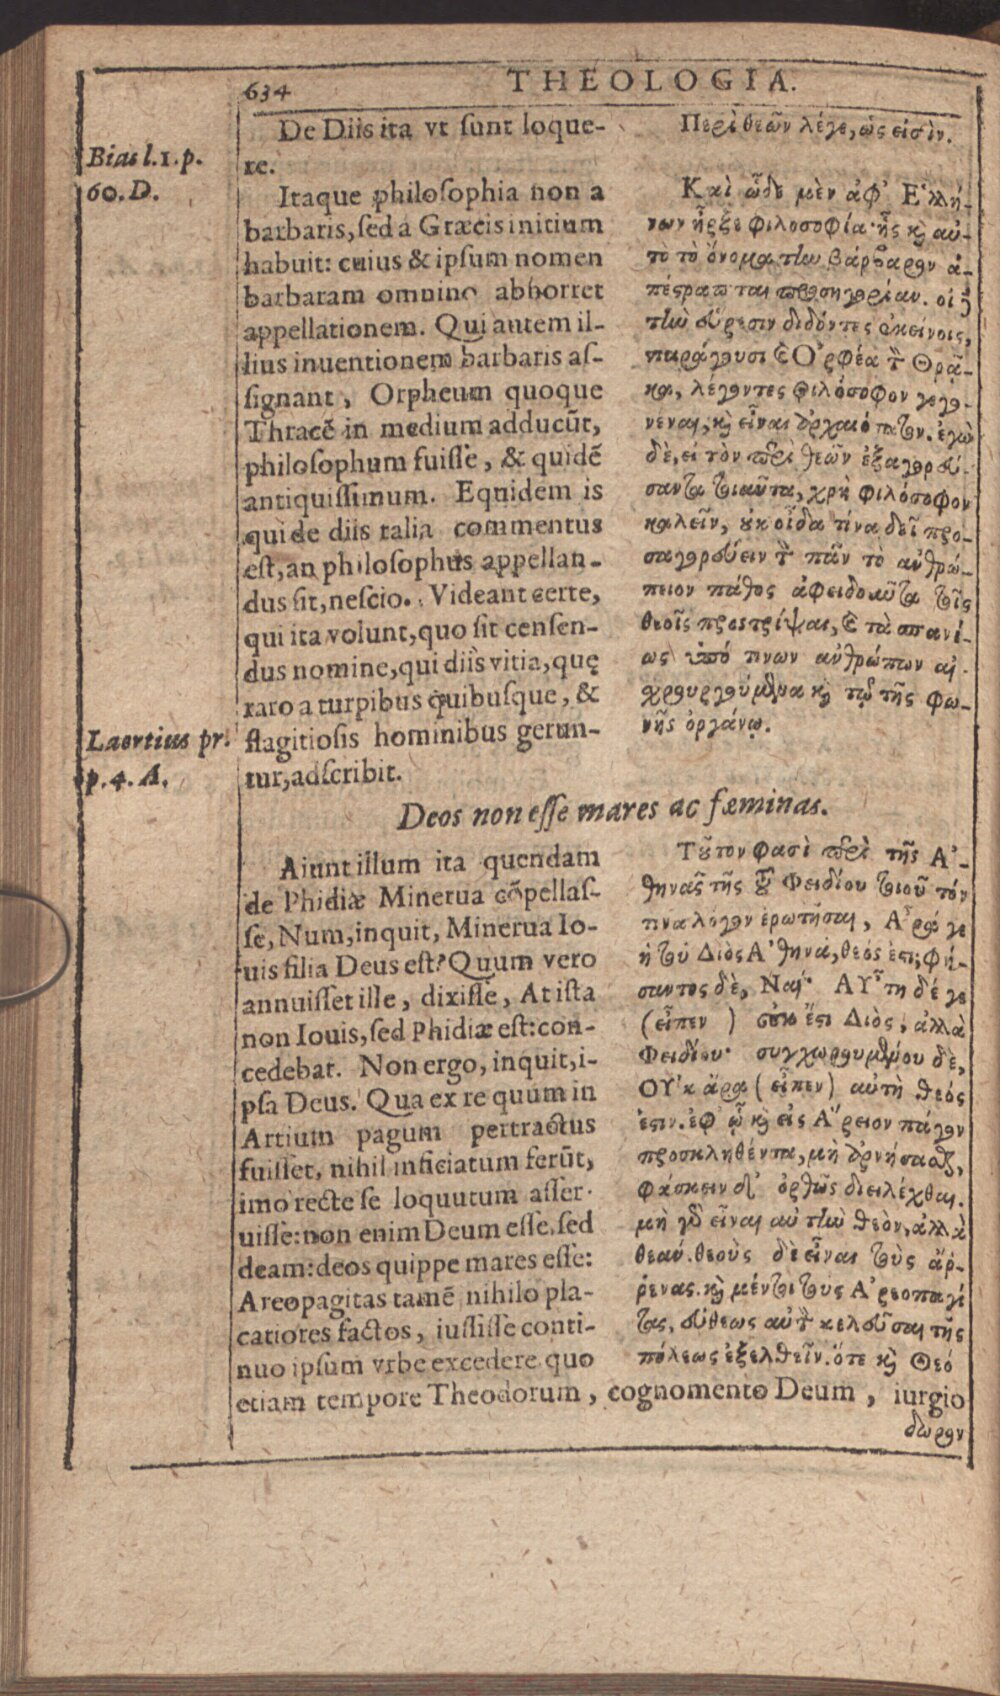 634
THEOLOGIA.
Bias l. 1. p.
60. D.
De Diis ita vt sunt loque-
re.
Itaque philosophia non a
barbaris, sed a Græcis initium
habuit: cuius & ipsum nomen
barbaram omnino abhorret
appellationem. Qui autem il-
lius inuentionem barbaris as-
signant, Orpheum quoque
Thracẽ in medium adducũt,
philosophum fuisse, & quidẽ
antiquissimum. Equidem is
qui de diis talia commentus
est, an philosophus appellan-
dus sit, nescio. Videant certe,
qui ita volunt, quo sit censen-
dus nomine, qui diis vitia, quę
raro a turpibus quibusque, &
flagitiosis hominibus gerun-
tur, adscribit.
Laertius pr.
p. 4. A.
Περὶ θεῶν λέγε, ὡς εἰσὶν.
Καὶ ὧδε μὲν ἀφ' Ἑλλή-
νων ἦρξε φιλοσοφία· ἧς κὴ αὐ-
τὸ τὸ ὄνομα τὴν βάρβαρον ἀ-
πέστραπται προσηγορίαν. οἱ δὲ
τὴν εὕρεσιν διδόντες ἐκείνοις,
παράγουσι καὶ Ὀρφέα τὸν Θρᾷ-
κα, λέγοντες φιλόσοφον γεγο-
νέναι, καὶ εἶναι ἀρχαιότατον. ἐγὼ
δὲ, εἰ τὸν περὶ θεῶν ἐξαγορεύ-
σαντα τοιαῦτα, χρὴ φιλόσοφον
καλεῖν, οὐκ οἶδα τίνα δεῖ προ-
σαγορεύειν τὸν πᾶν τὸ ἀνθρώ-
πειον πάθος ἀφειδοῦντα τοῖς
θεοῖς προστρίψαι, καὶ τὰ σπανί-
ως ὑπό τινων ἀνθρώπων αἰ-
χρουργούμενα καὶ τῷ τῆς φω-
νῆς ὀργάνῳ.
Deos non esse mares ac fœminas.
Aiunt illum ita quendam
de Phidiæ Minerua cõpellas-
se, Num, inquit, Minerua Io-
uis filia Deus est? Quum vero
annuisset ille, dixisse, At ista
non Iouis, sed Phidiæ est: con-
cedebat. Non ergo, inquit, i-
psa Deus. Qua ex re quum in
Artium pagum pertractus
fuisset, nihil inficiatum ferũt,
imo recte se loquutum asser-
uisse: non enim Deum esse, sed
deam: deos quippe mares esse:
Areopagitas tamẽ nihilo pla-
catiores factos, iussisse conti-
nuo ipsum vrbe excedere. quo
etiam tempore Theodorum, cognomento Deum, iurgio
Τοῦτον φασὶ περὶ τῆς Ἀ-
θηνᾶς τῆς τοῦ Φειδίου τοιοῦτόν
τινα λόγον ἐρωτῆσαι, Ἆρά γε
ἡ τοῦ Διὸς Ἀθηνᾶ, θεός ἐστι; φή-
σαντος δὲ, Ναί· Αὕτη δέ γε
(εἶπεν) οὐκ ἔστι Διὸς, ἀλλὰ
Φειδίου· συγχωρουμένου δὲ,
Οὐκ ἄρα (εἶπεν) αὐτὴ θεός
ἐστιν. ἐφ' ᾧ καὶ εἰς Ἄρειον πάγον
προσκληθέντα, μὴ ἀρνήσασθαι,
φάσκειν δ' ὀρθῶς διειλέχθαι.
μὴ γὰρ εἶναι αὐτὴν θεὸν, ἀλλὰ
θεάν. θεοὺς δὲ εἶναι τοὺς ἄρ-
ρενας. καὶ μέντοι τοὺς Ἀρεοπαγί
τας, εὐθέως αὐτὸν κελεῦσαι τῆς
πόλεως ἐξελθεῖν. ὅτε καὶ Θεό
δωρον